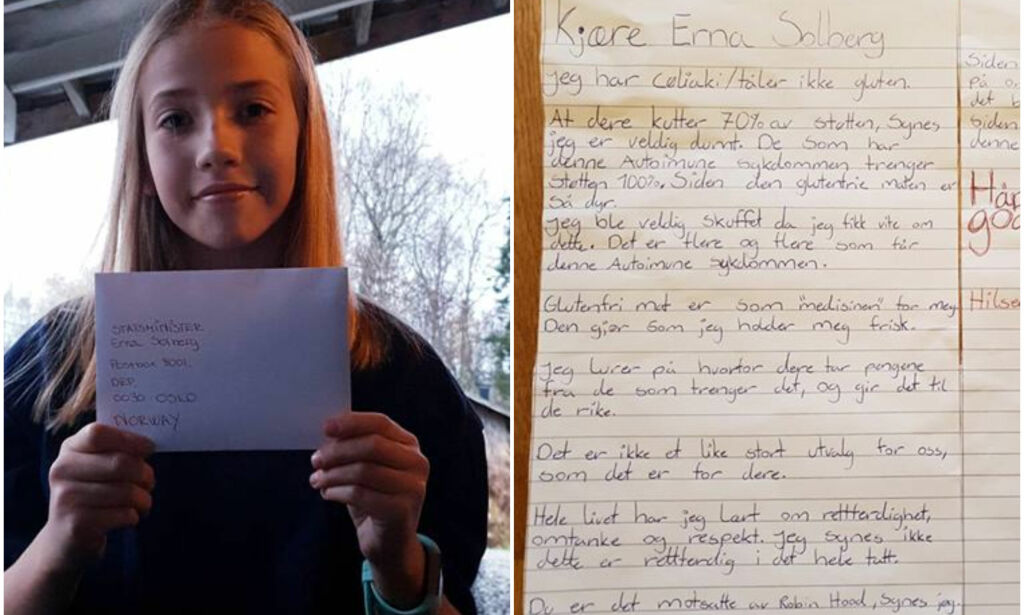 STATSMINISTER
Erna Solberg
Postbox 8001
DEP.
0030 OSLO
NORWAY
Kjære Erna Solberg
Jeg har Cøliaki/tåler ikke gluten.
At dere kutter 70% av støtten, Synes
jeg er veldig dumt. De som har
denne Autoimune sykdommen trenger
støtten 100%. Siden den glutenfrie maten er
så dyr.
Jeg ble veldig skuffet da jeg fikk vite om
dette. Det er flere og flere som får
denne Autoimune sykdommen.
Glutenfri mat er som "medisinen" for meg
Den gjør som jeg holder meg frisk.
Jeg lurer på hvorfor dere tar pengene
fra de som trenger det, og gir det til
de rike.
Det er ikke et like stort utvalg for oss,
som det er for dere.
Hele livet har jeg lært om rettferdighet,
omtanke og respekt. Jeg synes ikke
dette er rettferdig i det hele tatt.
Du er det motsatte av Robin Hood, Synes jeg.
Siden
på
det b
siden
denne
Håp
god
Hilse